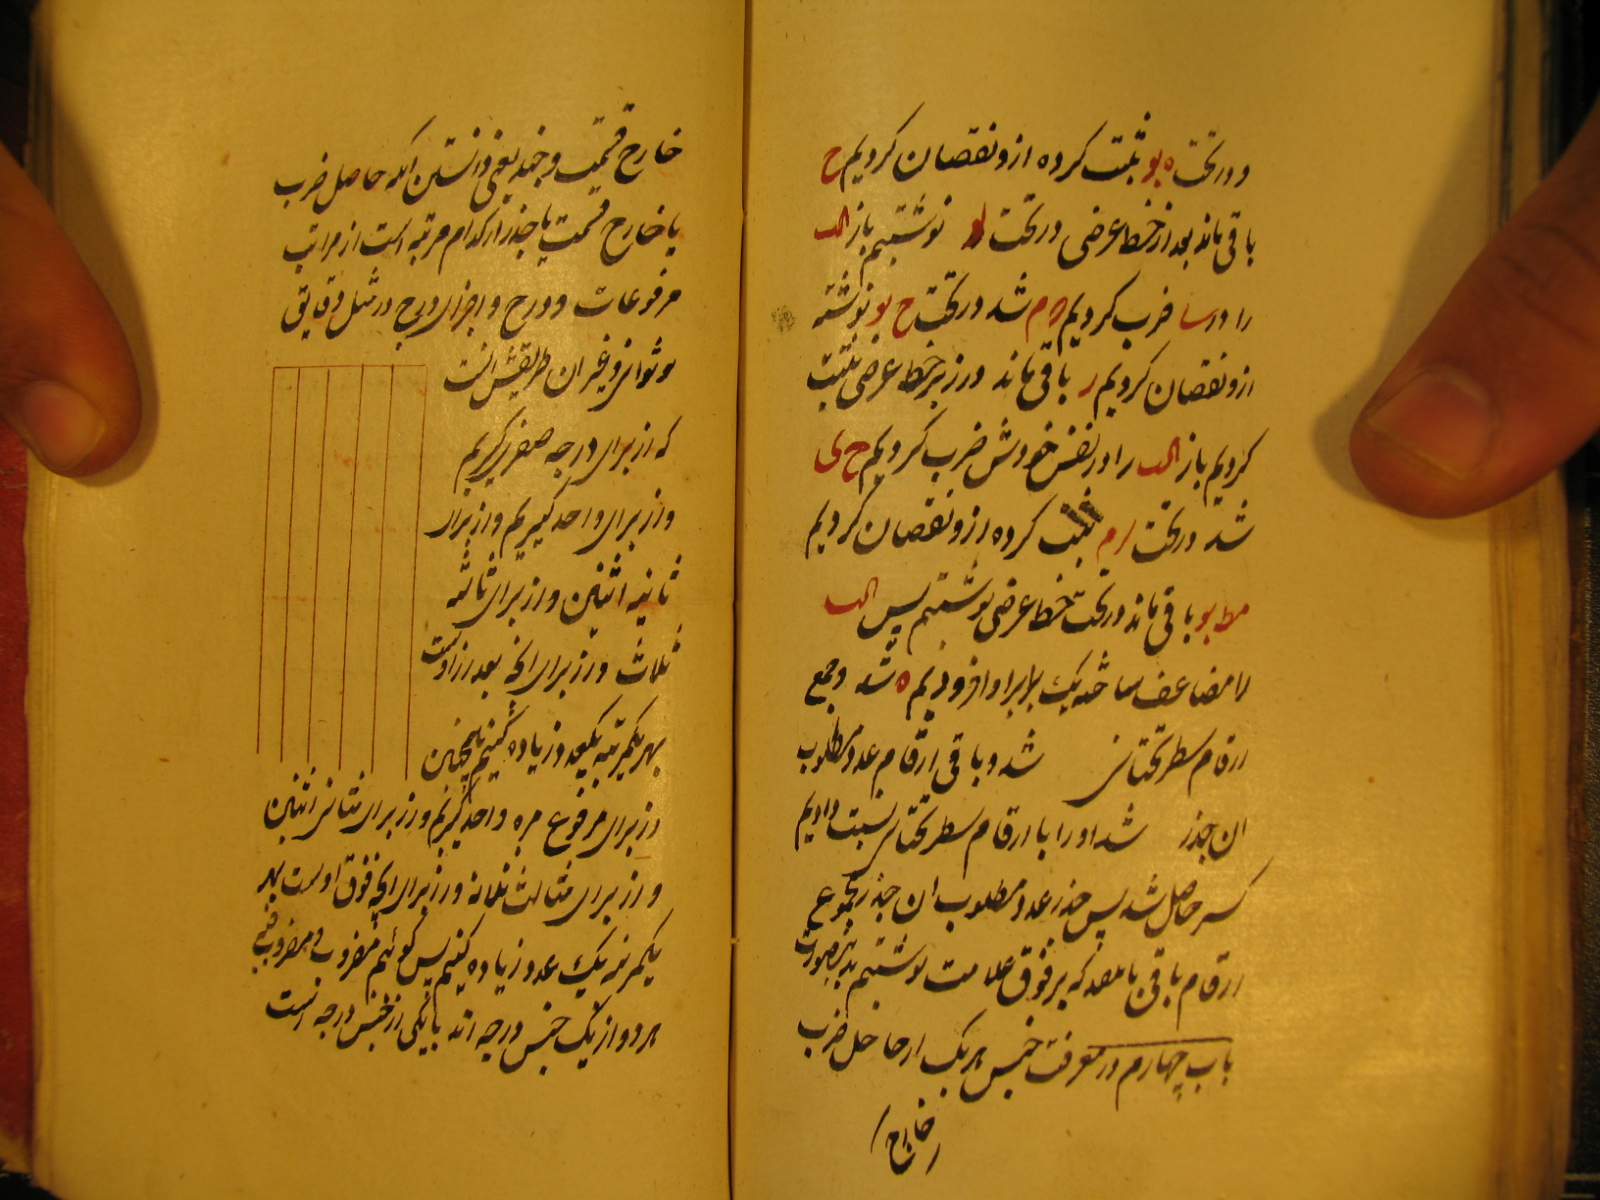 و در تحت ه یو ثبت کرده ازو نقصان کردیم ح
باقی ماند بعد از خط عرضی در تحت لو نوشتیم باز الف
را در سا ضرب کردیم م شد در تحت ح یو نوشته
ازو نقصان کردیم ر باقی ماند و در زیر خط عرضی ثبت
کردیم باز الف را در نفس خودش ضرب کردیم ح ی
شد در تحت م ثبت کرده ازو نقصان کردیم
مط یو باقی ماند در تحت خط عرضی نوشتیم پس الف
را مضاعف ساخته یک برابر او افزودیم ه شد و جمع
ارقام سطر تحتانی شد و باقی ارقام عدد مطلوب
ان جذر شد او را با ارقام سطر تحتانی نسبت دادیم
کسر حاصل شد پس جذر عدد مطلوب ان جذر مجموع
ارقام باقی که بر فوق علامت نوشتیم بدینصورت
باب چهارم در معرفت جنس هر یک از حاصل ضرب
خارج
خارج قسمت و جذر یعنی دانستن انکه حاصل ضرب
یا خارج قسمت یا جذر از کدام مرتبه است از مراتب
مرفوعات و درج و اجزای درج در مثل دقایق
و ثوانی و غیر ان طریقش انست
که از برای درجه صفر گیریم
و از برای واحد گیریم و از برای
ثانیه اثنین و از برای ثالثه
ثلاث و از برای انچه بعد از اوست
بهر یکمرتبه یکعدد زیاده کنیم همچنین
از برای مرفوع مره واحد گیریم و از برای مثانی اثنین
و از برای مثالث ثلاثه و از برای انچه فوق اوست بهر
یکمرتبه یک عدد زیاده کنیم پس گوئیم مضروب و مضروب فیه
هر دو از یک جنس درجه اند یا یکی از جنس درجه است